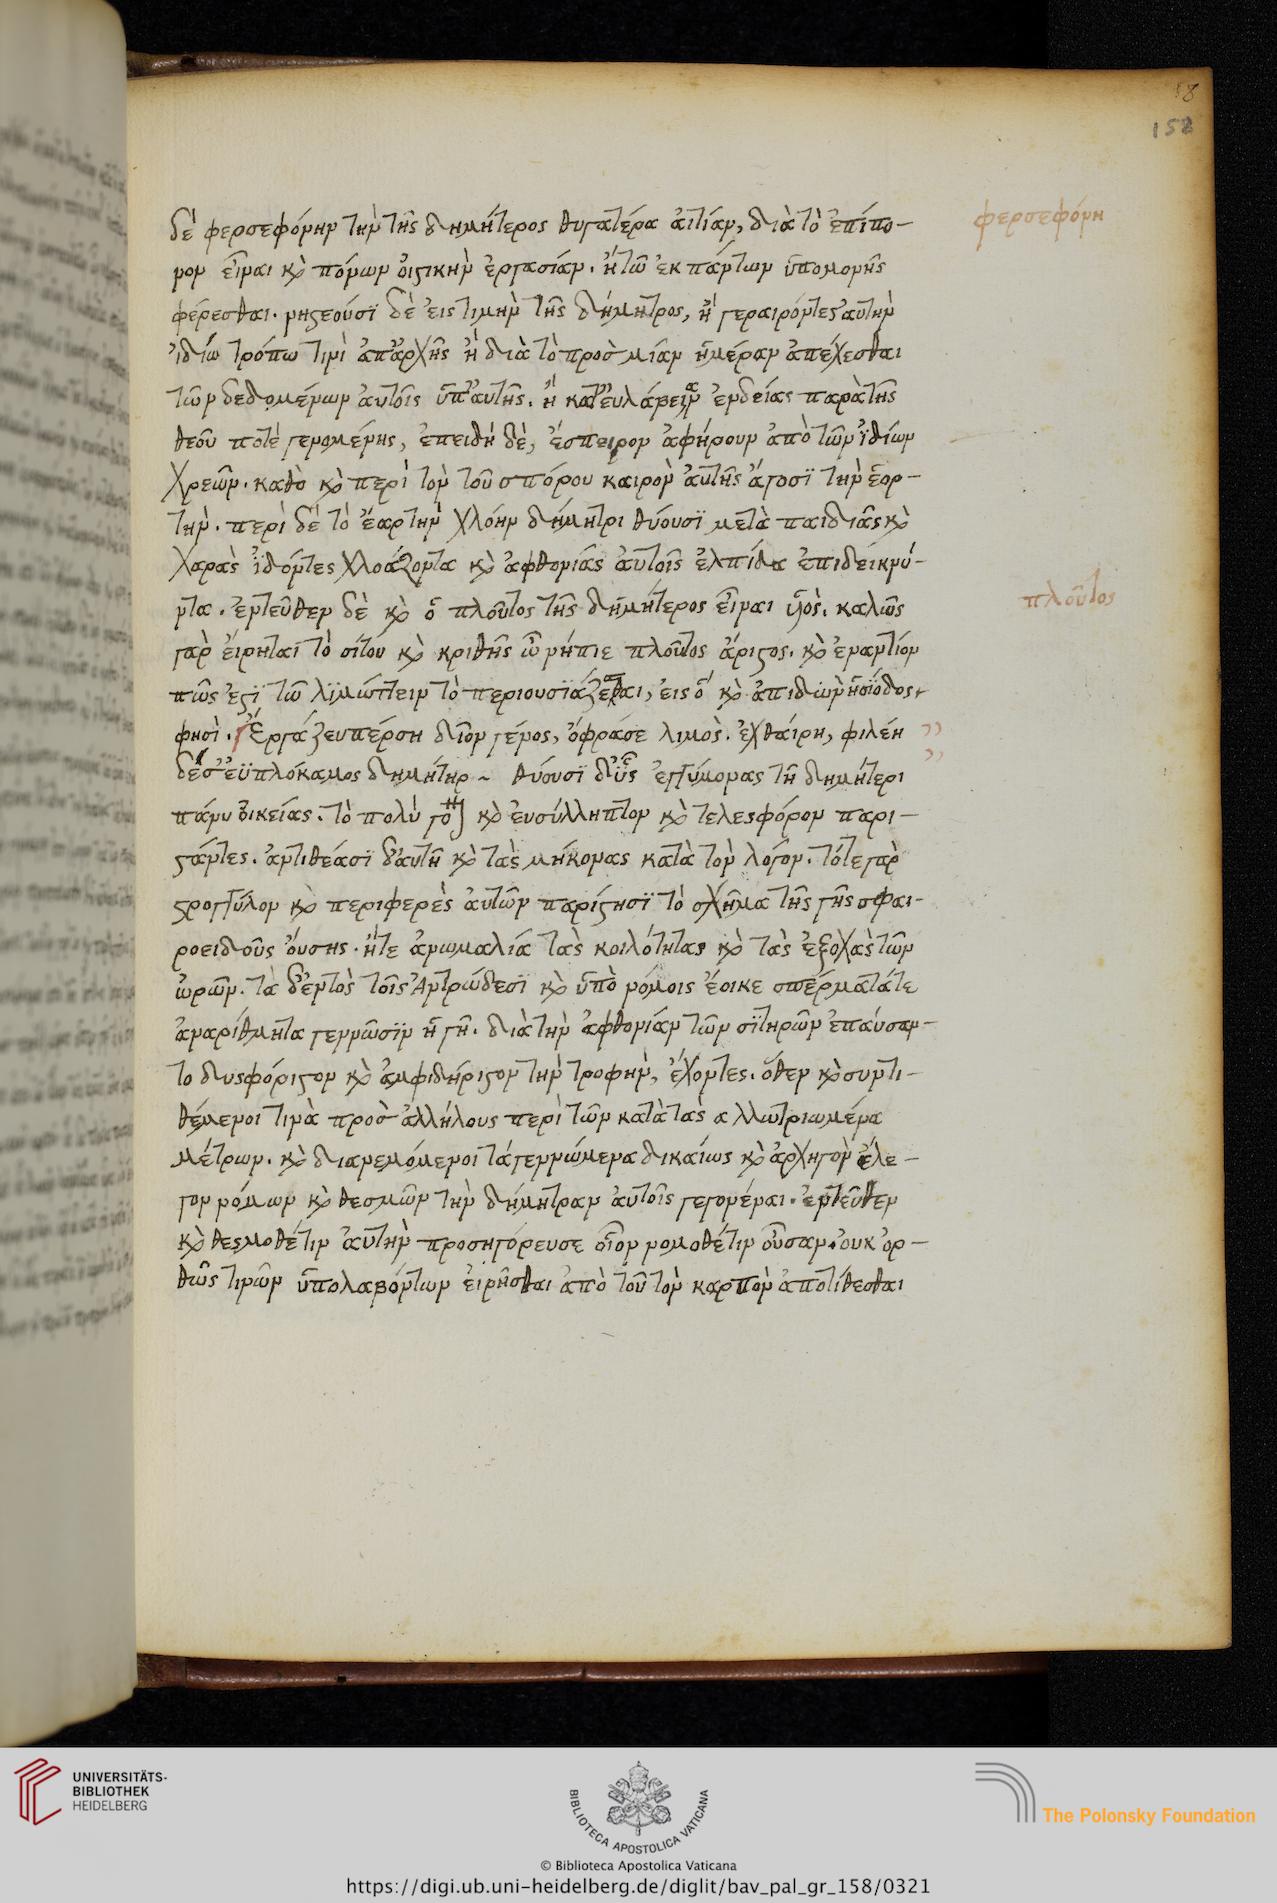 18
158
δὲ φερσεφόνην τὴν τῆς δημήτερος θυγατέρα αἰτίαν, διὰ τὸ ἐπίπο-
φερσεφόνη
νον εἶναι κ̀ πόνων οἰστικὴν ἐργασίαν. ἢ τῶ ἐκ πάντων ὑπομονῆς
φέρεσθαι. νηστεούσϊ δὲ εἰς τιμὴν τῆς δήμητρος, ἢ γεραιρόντες αὐτὴν
ἰδίω τρόπω τινὶ ἀπαρχῆς ἢ διὰ τὸ προσ μίαν ἡμέραν ἀπέχεσθαι
τῶν δεδομένων αὐτοῖς ὑπ' αὐτῆς. ἢ κατ' εὐλάβειαν ἐνδείας παρὰ τῆς
θεοῦ ποτέ γενομένης, ἐπειδὴ δὲ, ἔσπειρον ἀφήρουν ἀπὸ τῶν ἰδίων
χρεῶν. καθὸ κ̀ περὶ τὸν τοῦ σπόρου καιρὸν αὐτῆς ἄγοσϊ τὴν ἑορ-
τὴν. περὶ δὲ τὸ ἔαρ τὴν χλόην δήμητρι θύουσϊ μετὰ παιδιᾶς κ̀
χαρᾶς ἰδόντες χλοάζοντα κ̀ ἀφθονίας αὐτοῖς ἐλπίδα ἐπιδεικνύ-
ντα. ἐντεῦθεν δὲ κ̀ ὁ πλοῦτος τῆς δημήτερος εἶναι υἱὸς. καλῶς
πλοῦτος
γὰρ εἴρηται τὸ σίτου κ̀ κριθῆς ὦ νήπιε πλοῦτος ἄριστος. κ̀ ἐναντίον
πῶς ἐστϊ τῶ λϊμώττειν τὸ περιουσϊάζεσθαι, εἰς ὃ κ̀ ἀπιδὼν ἡσίοδος,
φησὶ. Ἐργάζευ πέρση δῖον γένος, ὄφρα σε λιμὸς. ἐχθαίρη, φιλέη
δέ σ' ἐϋπλόκαμος δημήτηρ ~ θύουσϊ δ' ὗς ἐγγύμονας τῆ δημήτερι
πάνυ οἰκείας. τὸ πολύ γονον κ̀ εὐσύλληπτον κ̀ τελεσφόρον παρι-
στάντες. ἀντιθέασϊ δ' αὐτῆ κ̀ τὰς μήκονας κατὰ τὸν λόγον. τότε γὰρ
στρογγύλον κ̀ περιφερὲς αὐτῶν παρίστησϊ τὸ σχῆμα τῆς γῆς σφαι-
ροειδοῦς οὔσης. ἥτε ἀνωμαλία τὰς κοιλότητας κ̀ τὰς ἐξοχὰς τῶν
ὠρῶν. τὰ δ' ἐντὸς τοῖς Ἀντρώδεσϊ κ̀ ὑπὸ νόμοις ἔοικε σπέρματάτε
ἀναρίθμητα γεννῶσϊν ἡ γῆ. διὰ τὴν ἀφθονίαν τῶν σϊτηρῶν ἐπαύσαν-
το δυσφόριστον κ̀ ἀμφιδήριστον τὴν τροφὴν, ἔχοντες. ὅθεν κ̀ συντι-
θέμενοι τινὰ προσ ἀλλήλους περὶ τῶν κατὰ τὰς αλλωτριωμένα
μέτρων. κ̀ διανεμόμενοι τὰ γεννώμενα δικαίως κ̀ ἀρχηγὸν ἔλε-
γον νόμων κ̀ θεσμῶν τὴν δήμητραν αὐτοῖς γεγονέναι. ἐντεῦθεν
κ̀ θεσμοθέτιν αὐτὴν προσηγόρευσε οἷον νομοθέτιν οὖσαν. οὐκ ὀρ-
θῶς τινῶν ὑπολαβόντων εἰρῆσθαι ἀπὸ τοῦ τὸν καρπὸν ἀποτίθεσθαι
UNIVERSITÄTS-
BIBLIOTHEK
HEIDELBERG
BIBLIOTECA APOSTOLICA VATICANA
© Biblioteca Apostolica Vaticana
The Polonsky Foundation
https://digi.ub.uni-heidelberg.de/diglit/bav_pal_gr_158/0321